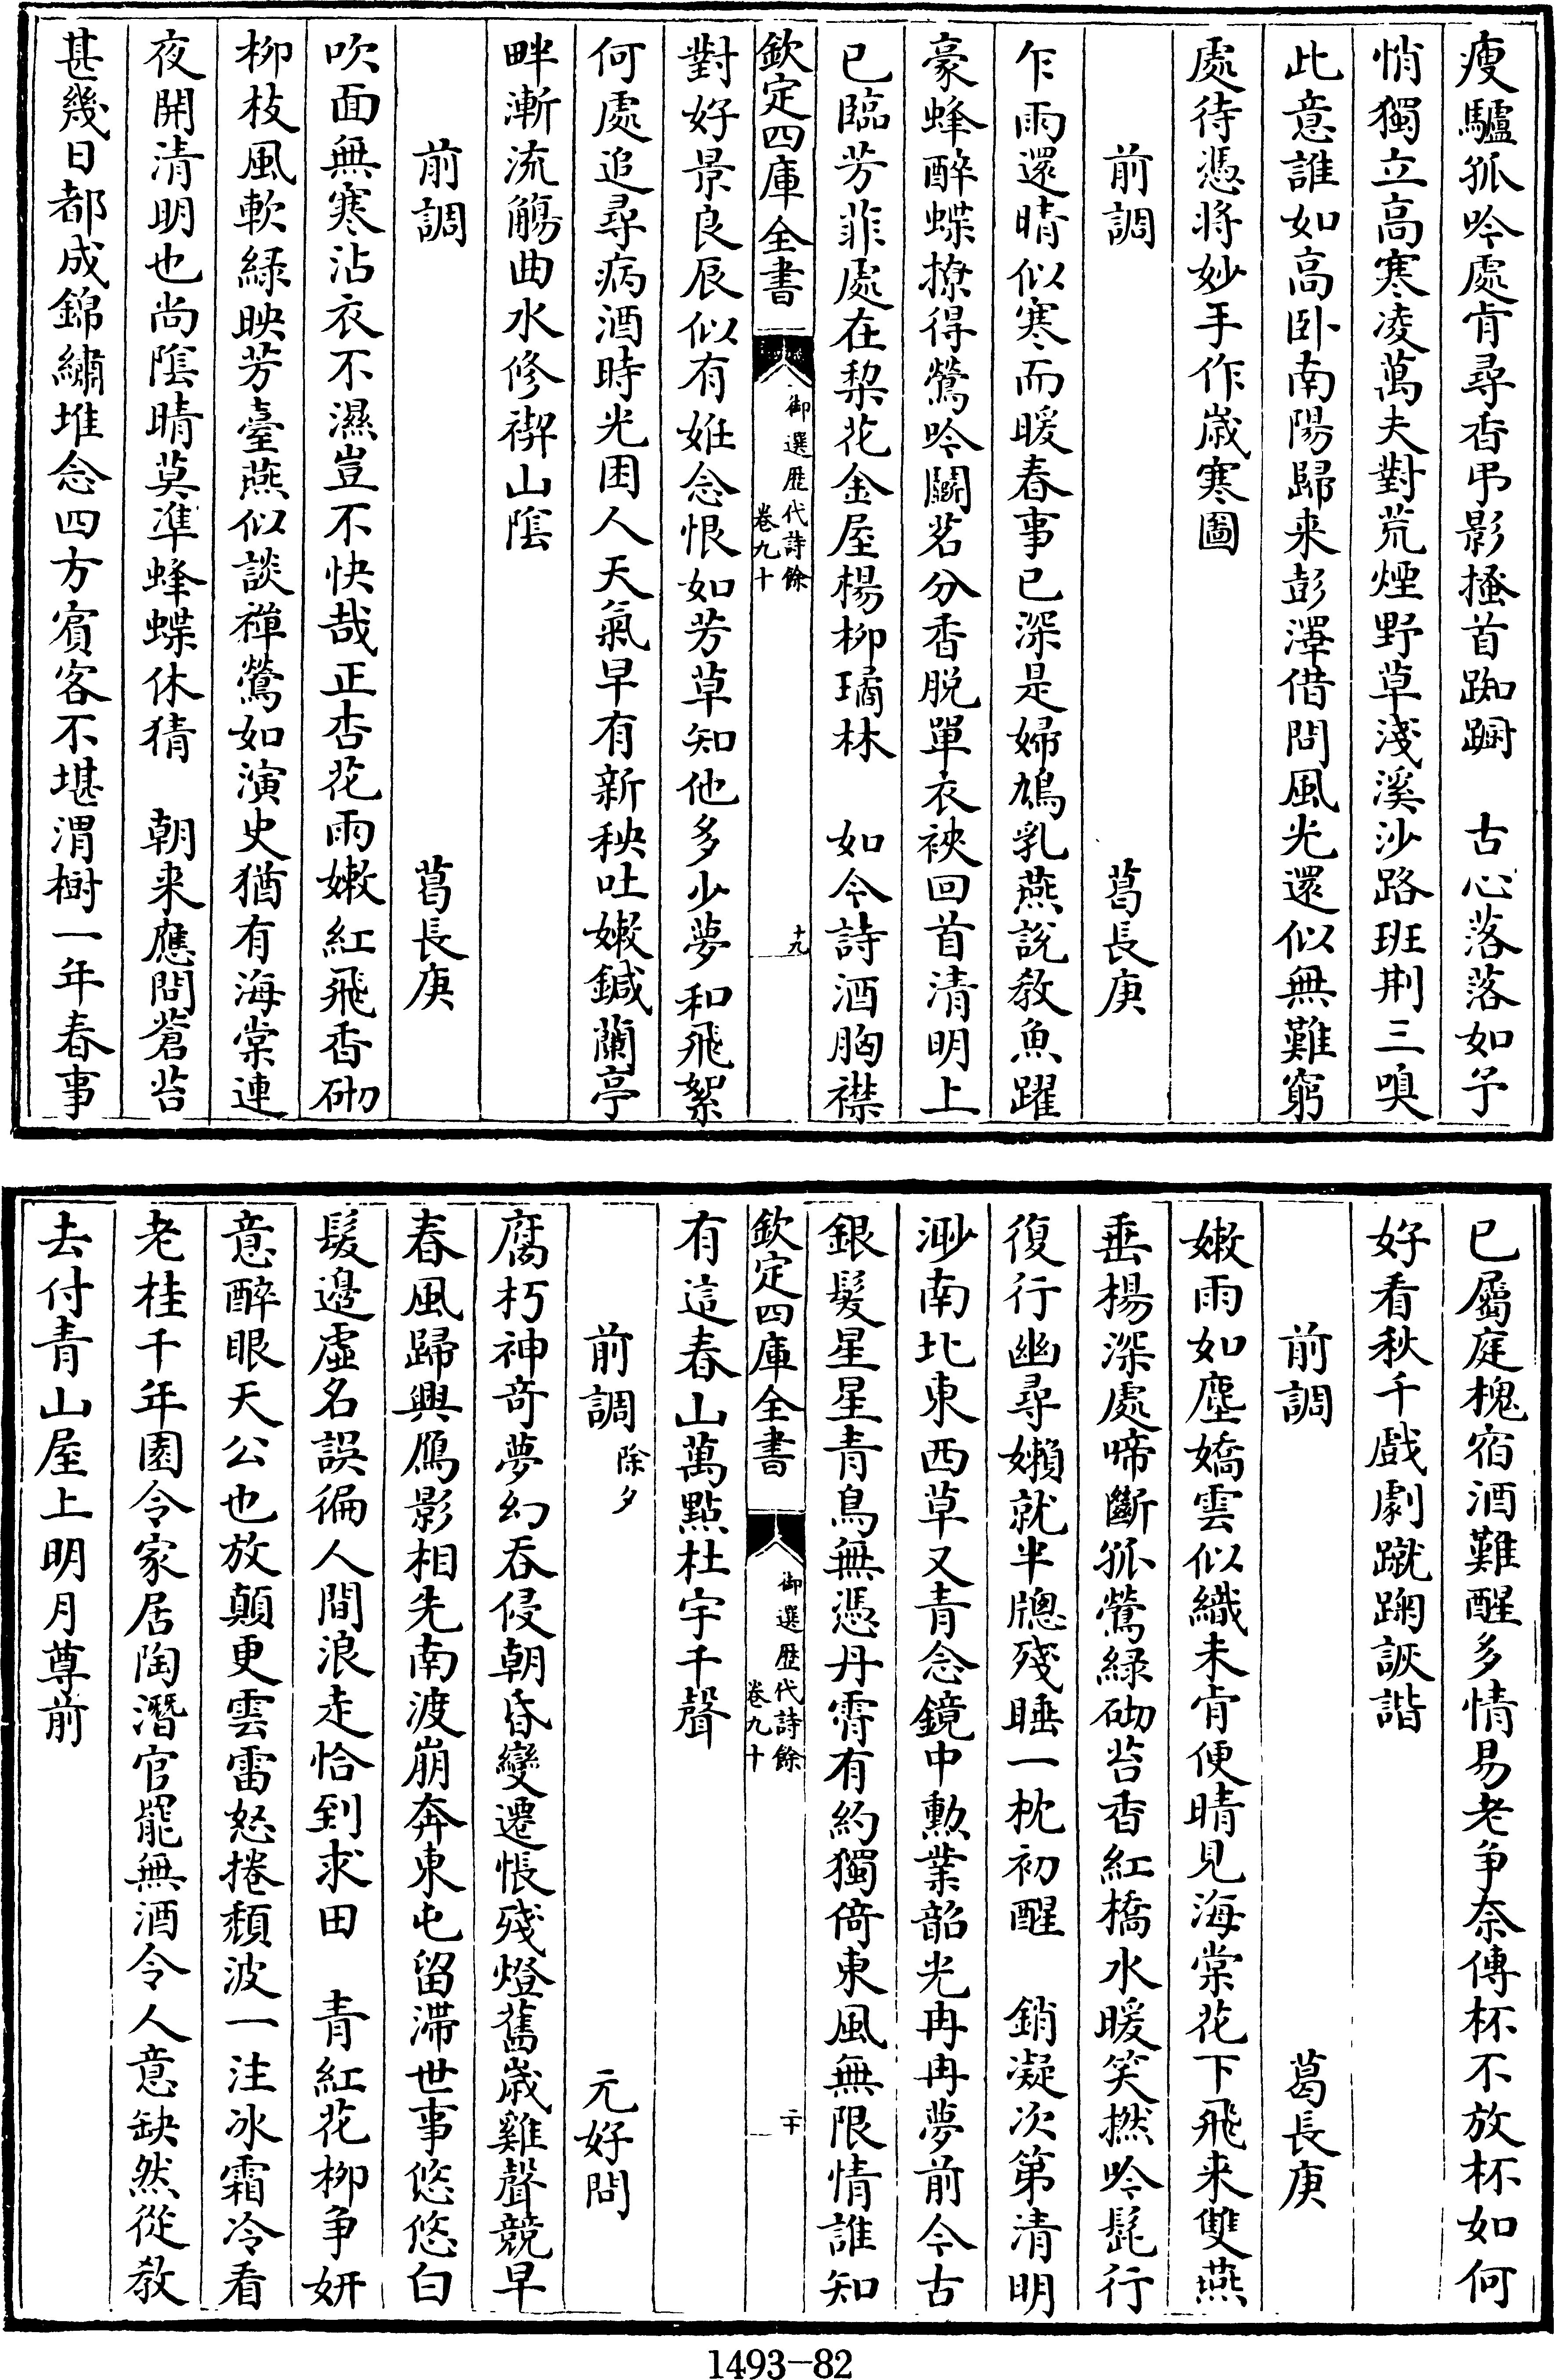 瘦驢孤吟處肯尋香弔影搔首踟蹰　古心落落如予
悄獨立高寒凌萬夫對荒煙野草淺溪沙路班荆三嗅
此意誰如高卧南陽歸来彭澤借問風光還似無難窮
處待憑将妙手作歲寒圖
前調　葛長庚
乍雨還晴似寒而暖春事已深是婦鳩乳燕說教魚躍
豪蜂醉蝶撩得鶯吟鬭茗分香脱單衣裌回首清明上
已臨芳菲處在棃花金屋楊栁璚林　如今詩酒胸襟
欽定四庫全書　御選歴代詩餘　卷九十　十九
對好景良辰似有妊念恨如芳草知他多少夢和飛絮
何處追尋病酒時光困人天氣早有新秧吐嫩鍼蘭亭
畔漸流觴曲水修禊山隂
前調　葛長庚
吹面無寒沾衣不濕豈不快哉正杏花雨嫩紅飛香砌
栁枝風軟綠映芳臺燕似談禪鶯如演史猶有海棠連
夜開清明也尚隂晴莫凖蜂蝶休猜　朝来應問蒼苔
甚幾日都成錦繡堆念四方賓客不堪渭樹一年春事
已屬庭槐宿酒難醒多情易老争奈傳杯不放杯如何
好看秋千戲劇蹴踘詼諧
前調　葛長庚
嫩雨如塵嬌雲似織未肯便晴見海棠花下飛来雙燕
垂楊深處啼斷孤鶯綠砌苔香紅橋水暖笑撚吟髭行
復行幽尋嬾就半牕殘睡一枕初醒　銷凝次第清明
渺南北東西草又青念鏡中勲業韶光冉冉夢前今古
銀髮星星青鳥無憑丹霄有約獨倚東風無限情誰知
欽定四庫全書　御選歴代詩餘　卷九十　二十
有這春山萬點杜宇千聲
前調除夕　元好問
腐朽神奇夢幻吞侵朝昏變遷悵殘燈舊歲雞聲競早
春風歸興鴈影相先南渡崩奔東屯留滯世事悠悠白
髮邊虛名誤徧人間浪走恰到求田　青紅花栁争妍
意醉眼天公也放顛更雲雷怒捲頹波一注冰霜冷看
老桂千年園令家居陶潛官罷無酒令人意缺然從教
去付青山屋上明月尊前
1493—82